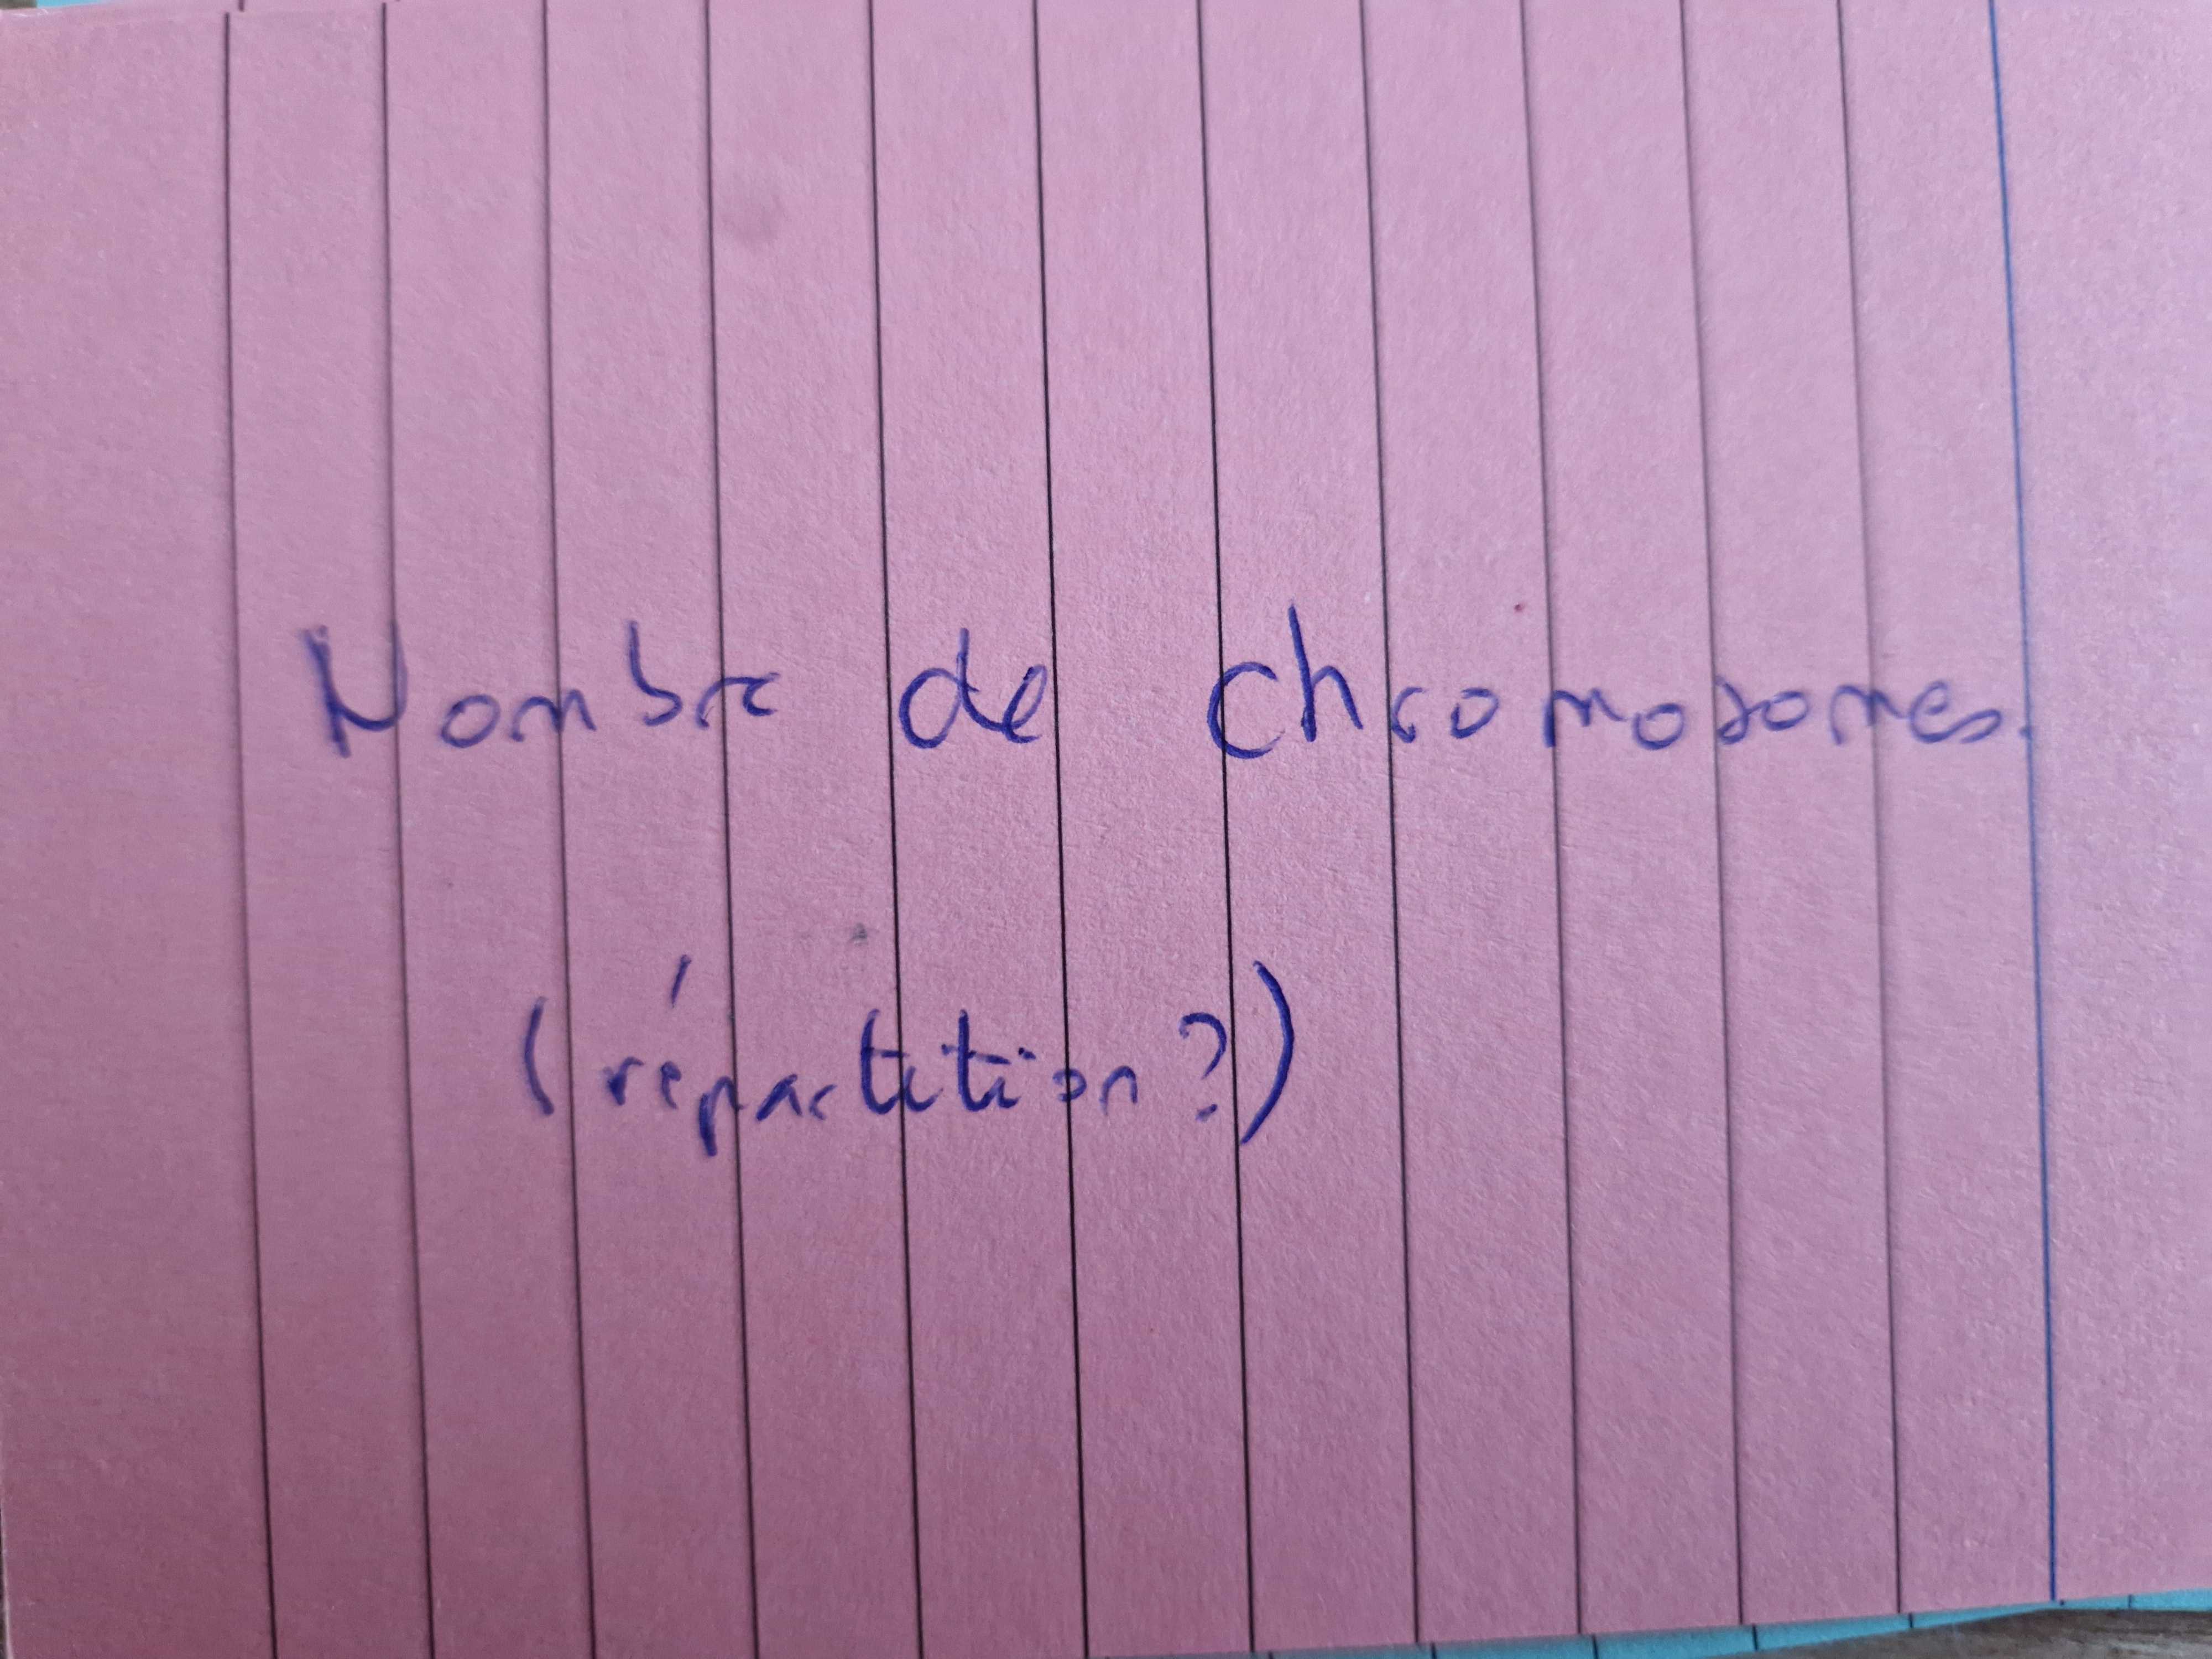 Nombre de chromosomes.
(répartition ?)